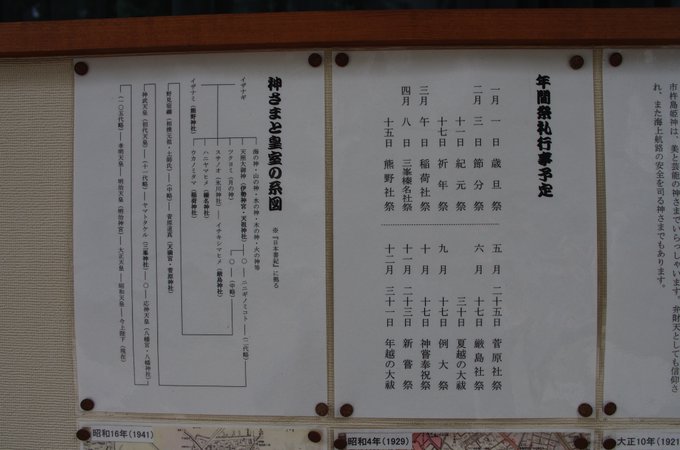 市杵島姫神は、美と芸能の神さまでいらっしゃいます。弁財天としても信仰さ
れ、また海上航路の安全を司る神さまでもあります。
年間祭礼行事予定
一月 一日 歳旦祭
二月 三日 節分祭
十一日 紀元祭
十七日 祈年祭
三月 午日 稲荷社祭
四月 八日 三峯榛名社祭
十五日 熊野社祭
五月 二十五日 菅原社祭
六月 十七日 厳島社祭
三十日 夏越の大祓
九月 十七日 例大祭
十月 十七日 神嘗奉祝祭
十一月 二十三日 新嘗祭
十二月 三十一日 年越の大祓
神さまと皇室の系図
※『日本書紀』に拠る
イザナギ
イザナミ(熊野神社)
海の神・山の神・水の神・木の神・火の神等
天照大御神(伊勢神宮・天祖神社)
〇
ニニギノミコト
(二代略)
ツクヨミ(月の神)
〇
(中略)
スサノオ(氷川神社)
イチキシマヒメ(厳島神社)
ハニヤマヒメ(榛名神社)
ウカノミタマ(稲荷神社)
野見宿禰(相撲元祖・土師氏)
(中略)
菅原道真(天満宮・菅原神社)
神武天皇(初代天皇)
(十一代略)
ヤマトタケル(三峯神社)
〇
応神天皇(八幡宮・八幡神社)
(一〇五代略)
孝明天皇
明治天皇(明治神宮)
大正天皇
昭和天皇
今上陛下(現在)
昭和16年(1941)
昭和4年(1929)
大正10年(1921